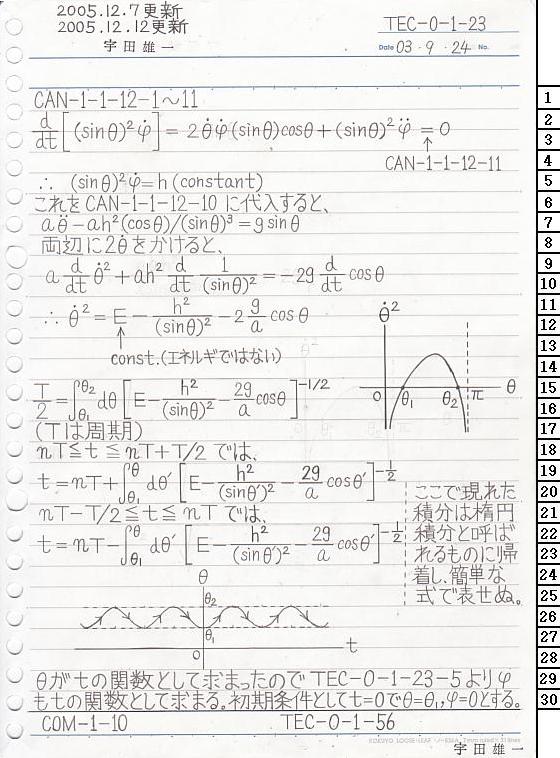 2005.12.7更新
2005.12.12更新
宇田雄一
TEC-0-1-23
Date 03・9・24 No.
CAN-1-1-12-1～11
d/dt[(sinθ)²φ̇] = 2θ̇φ̇(sinθ)cosθ+(sinθ)²φ̈ = 0
↑
CAN-1-1-12-11
∴ (sinθ)²φ̇=h(constant)
これをCAN-1-1-12-10に代入すると、
aθ̈-ah²(cosθ)/(sinθ)³=gsinθ
両辺に2θ̇をかけると、
a d/dt θ̇² + ah² d/dt 1/(sinθ)² = -2g d/dt cosθ
∴ θ̇² = E - h²/(sinθ)² - 2 g/a cosθ
↑
const.(エネルギではない)
θ̇²
0 θ₁ θ₂ π θ
T/2 = ∫θ₁^θ₂ dθ [E - h²/(sinθ)² - 2g/a cosθ]^-1/2
(Tは周期)
nT≦t≦nT+T/2では、
t=nT+∫θ₁^θ dθ′ [E - h²/(sinθ′)² - 2g/a cosθ′]^-1/2
nT-T/2≦t≦nTでは、
t=nT-∫θ₁^θ dθ′ [E - h²/(sinθ′)² - 2g/a cosθ′]^-1/2
ここで現れた
積分は楕円
積分と呼ば
れるものに帰
着し、簡単な
式で表せぬ。
θ
θ₂
θ₁
0
t
θがtの関数として求まったのでTEC-0-1-23-5よりφ
もtの関数として求まる。初期条件としてt=0でθ=θ₁,φ=0とする。
COM-1-10 TEC-0-1-56
宇田雄一
1
2
3
4
5
6
7
8
9
10
11
12
13
14
15
16
17
18
19
20
21
22
23
24
25
26
27
28
29
30